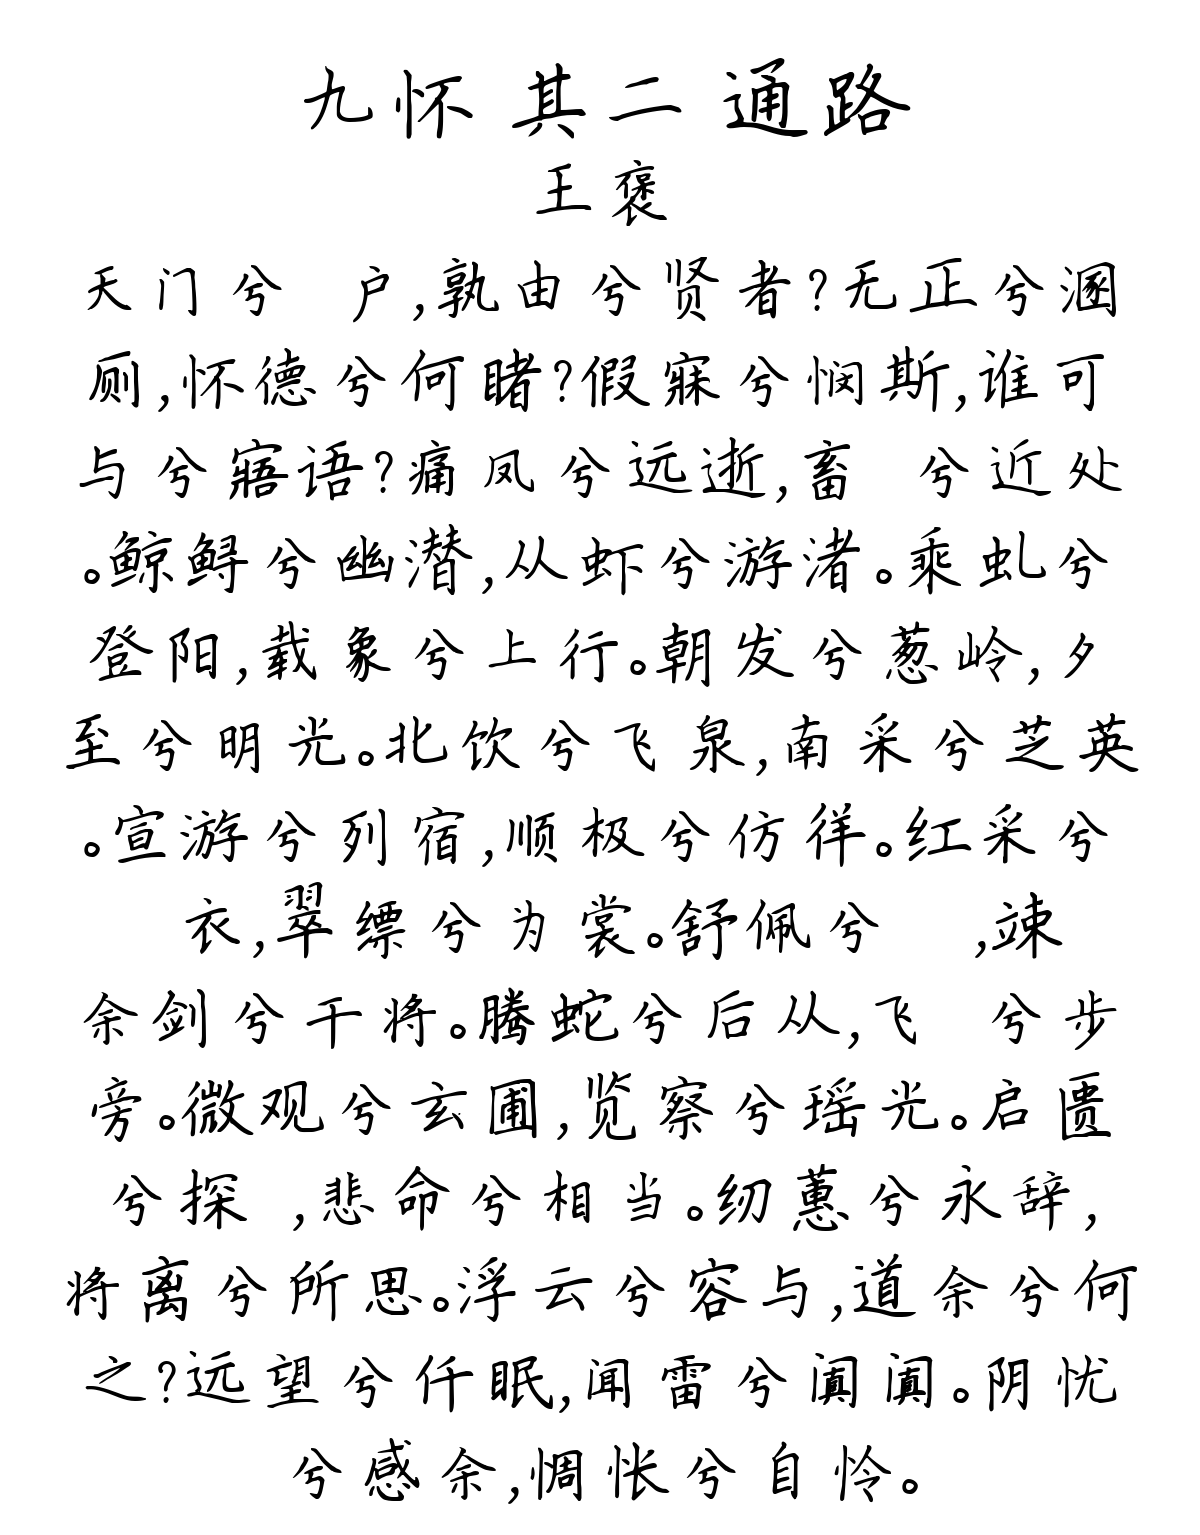 九怀 其二 通路
王褒
天门兮 户,孰由兮贤者?无正兮溷
厕,怀德兮何睹?假寐兮悯斯,谁可
与兮寤语?痛凤兮远逝,畜 兮近处
。鲸鲟兮幽潜,从虾兮游渚。乘虬兮
登阳,载象兮上行。朝发兮葱岭,夕
至兮明光。北饮兮飞泉,南采兮芝英
。宣游兮列宿,顺极兮仿徉。红采兮
衣,翠缥兮为裳。舒佩兮 ,竦
余剑兮干将。腾蛇兮后从,飞 兮步
旁。微观兮玄圃,览察兮瑶光。启匮
兮探 ,悲命兮相当。纫蕙兮永辞,
将离兮所思。浮云兮容与,道余兮何
之?远望兮仟眠,闻雷兮阗阗。阴忧
兮感余,惆怅兮自怜。